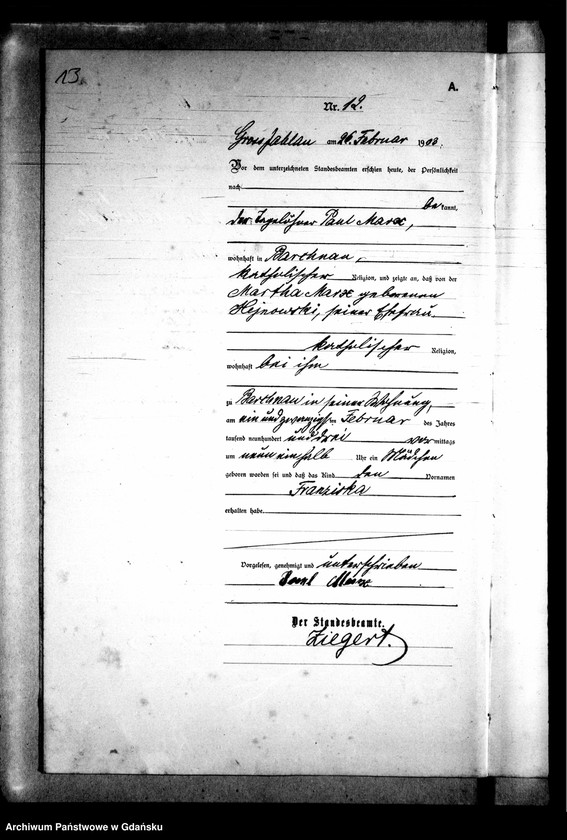 13.
A.
Nr. 12.
Gross Jablau am 26. Februar 1903.
Vor dem unterzeichneten Standesbeamten erschien heute, der Persönlichkeit
nach
be kannt,
der Tagelöhner Paul Marx,
wohnhaft in Barchnau,
katholischer Religion, und zeigte an, daß von der
Martha Marx geborenen
Hejnowski, seiner Ehefrau
katholischer Religion,
wohnhaft bei ihm
zu Barchnau in seiner Wohnung,
am ein und zwanzigsten Februar des Jahres
tausend neunhundert und drei vor mittags
um neun einhalb Uhr ein Mädchen
geboren worden sei und daß das Kind den Vornamen
Franziska
erhalten habe.
Vorgelesen, genehmigt und unterschrieben
Paul Marx
Der Standesbeamte.
Ziegert.
Archiwum Państwowe w Gdańsku